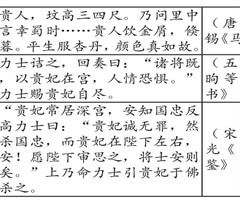 贵人，坟高三四尺。乃问里中
言幸蜀时……贵人饮金屑，倏
暮。平生服杏丹，颜色真如故。
（唐
锡《马
力士诘之，回奏曰：“诸将既
，以贵妃在宫，人情恐惧。”
力士赐贵妃自尽。
（五
昫等
书》
“贵妃常居深宫，安知国忠反
高力士曰：“贵妃诚无罪，然
杀国忠，而贵妃在陛下左右，
安！愿陛下审思之，将士安则
矣。”上乃命力士引贵妃于佛
杀之。
（宋
光《
鉴》